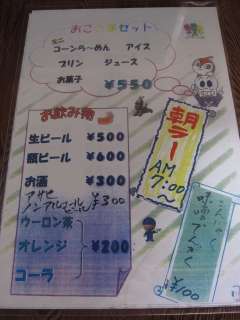 おこ様セット
ミニ
コーンら〜めん アイス
プリン ジュース
お菓子 ¥550
お飲み物
生ビール ¥500
瓶ビール ¥600
お酒 ¥300
アサヒ
ノンアルコールビール ¥300
ウーロン茶
オレンジ ¥200
コーラ
朝ラー
AM
7:00〜
こんにゃく
味噌でんがく
¥100